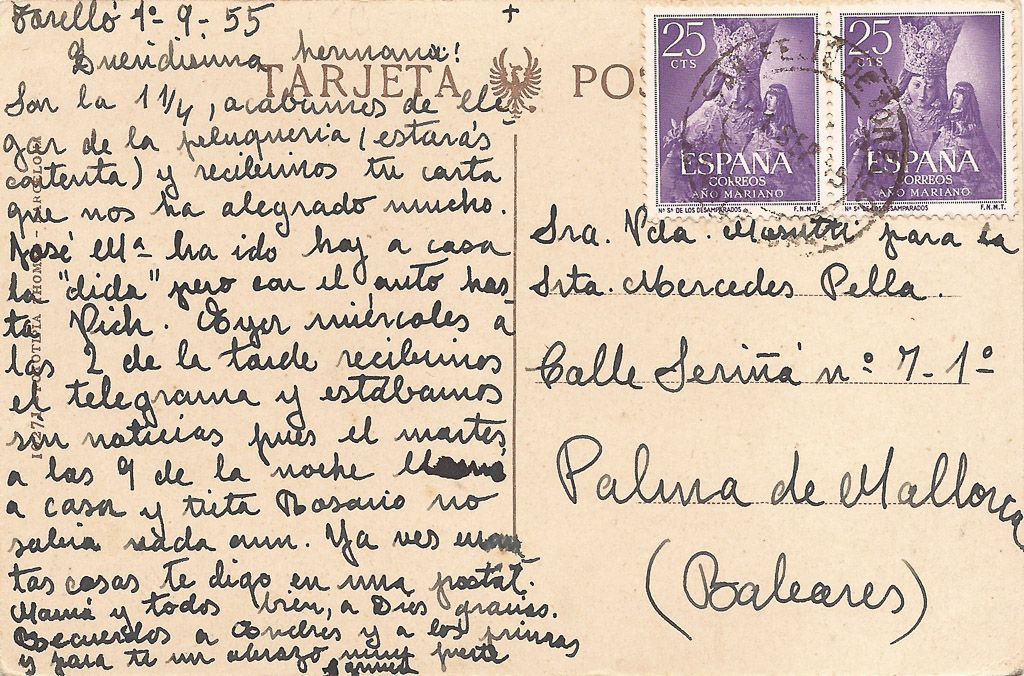 Torelló 1º-9-55
Queridisima hermana!
Son la 1 1/4, acabamos de lle
gar de la peluqueria (estarás
contenta) y recibimos tu carta
que nos ha alegrado mucho.
José Mª ha ido hoy a casa
la "dida" pero con el auto has-
ta Vich. Ayer miércoles a
las 2 de la tarde recibimos
el telegrama y estábamos
sin noticias pues el martes
a las 9 de la noche
a casa y tiita Rosario no
sabia nada aun. Ya ves
tas cosas te digo en una postal.
Mamá y todos bien, a Dios gracias.
Recuerdos a Andrés y a los primas
y para ti un abrazo muy fuerte
TARJETA POS
25 CTS
ESPAÑA
CORREOS
AÑO MARIANO
Nª Sª DE LOS DESAMPARADOS F.N.M.T.
25 CTS
ESPAÑA
CORREOS
AÑO MARIANO
Nª Sª DE LOS DESAMPARADOS F.N.M.T.
Sra. Vda. para la
Srta. Mercedes Pella.
Calle Seriñá nº 7-1º
Palma de Mallorca
(Baleares)
THOMAS - BARCELONA